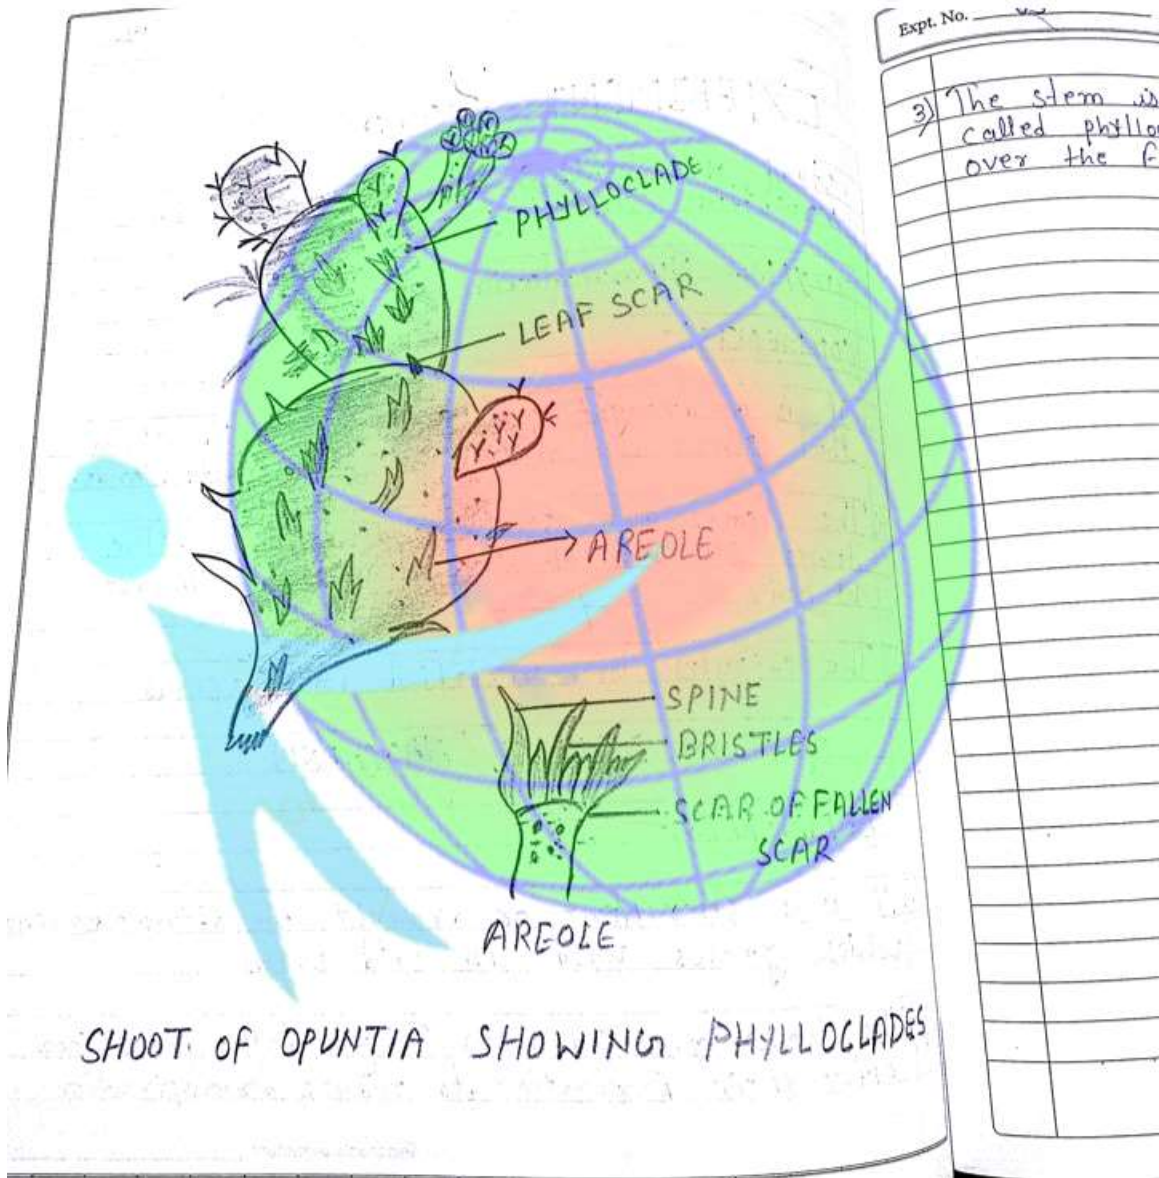 PHYLLOCLADE
LEAF SCAR
AREOLE
SPINE
BRISTLES
SCAR OF FALLEN
SCAR
AREOLE
SHOOT OF OPUNTIA SHOWING PHYLLOCLADES
Expt. No.
3) The stem is
called
over the